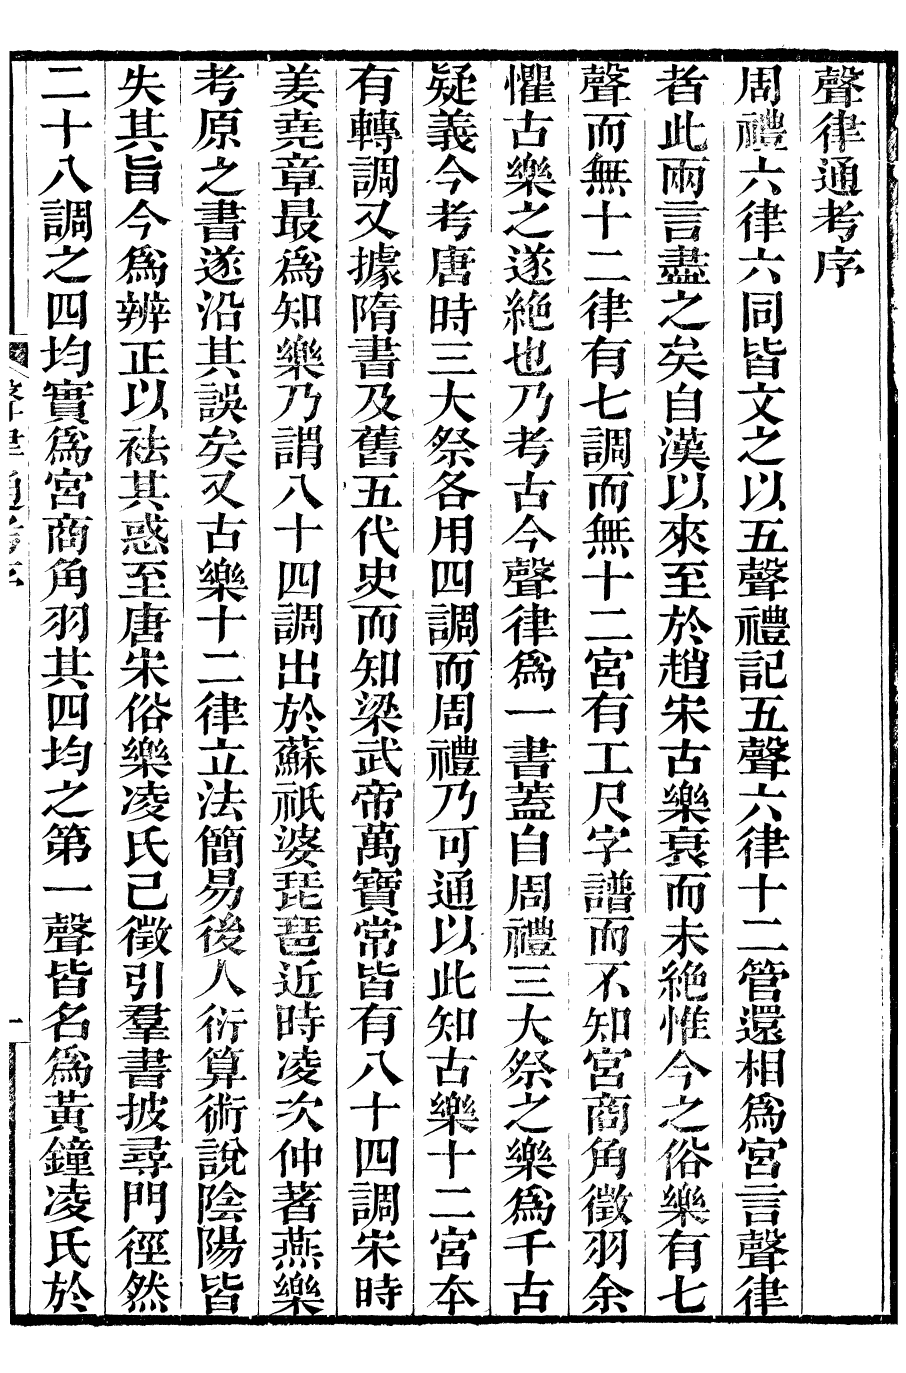 聲律通考序
周禮六律六同皆文之以五聲禮記五聲六律十二管還相爲宮言聲律
者此兩言盡之矣自漢以來至於趙宋古樂衰而未絶惟今之俗樂有七
聲而無十二律有七調而無十二宮有工尺字譜而不知宮商角徵羽余
懼古樂之遂絶也乃考古今聲律爲一書蓋自周禮三大祭之樂爲千古
疑義今考唐時三大祭各用四調而周禮乃可通以此知古樂十二宮本
有轉調又據隋書及舊五代史而知梁武帝萬寶常皆有八十四調宋時
姜堯章最爲知樂乃謂八十四調出於蘇祇婆琵琶近時凌次仲著燕樂
考原之書遂沿其誤矣又古樂十二律立法簡易後人衍算術說陰陽皆
失其旨今爲辨正以祛其惑至唐宋俗樂凌氏已徵引羣書披尋門徑然
二十八調之四均實爲宮商角羽其四均之第一聲皆名爲黃鐘凌氏於
聲律通考序
一